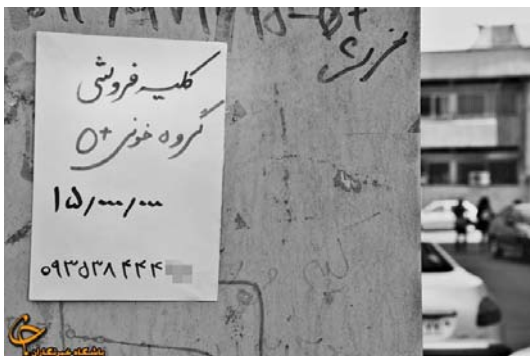 کلیه فروشی
گروه خونی O+
۱۵/۰۰۰/۰۰۰
۰۹۳۵۳۸۴۴۴
باشگاه خبرنگاران